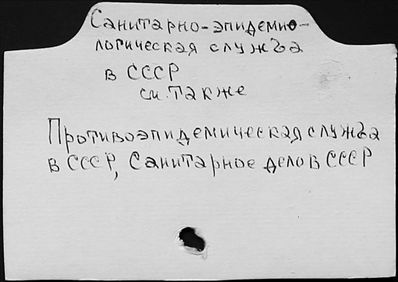 Санитарно-эпидемио-
логическая служба
в СССР
см. также
Противоэпидемическая служба
в СССР, Санитарное дело в СССР